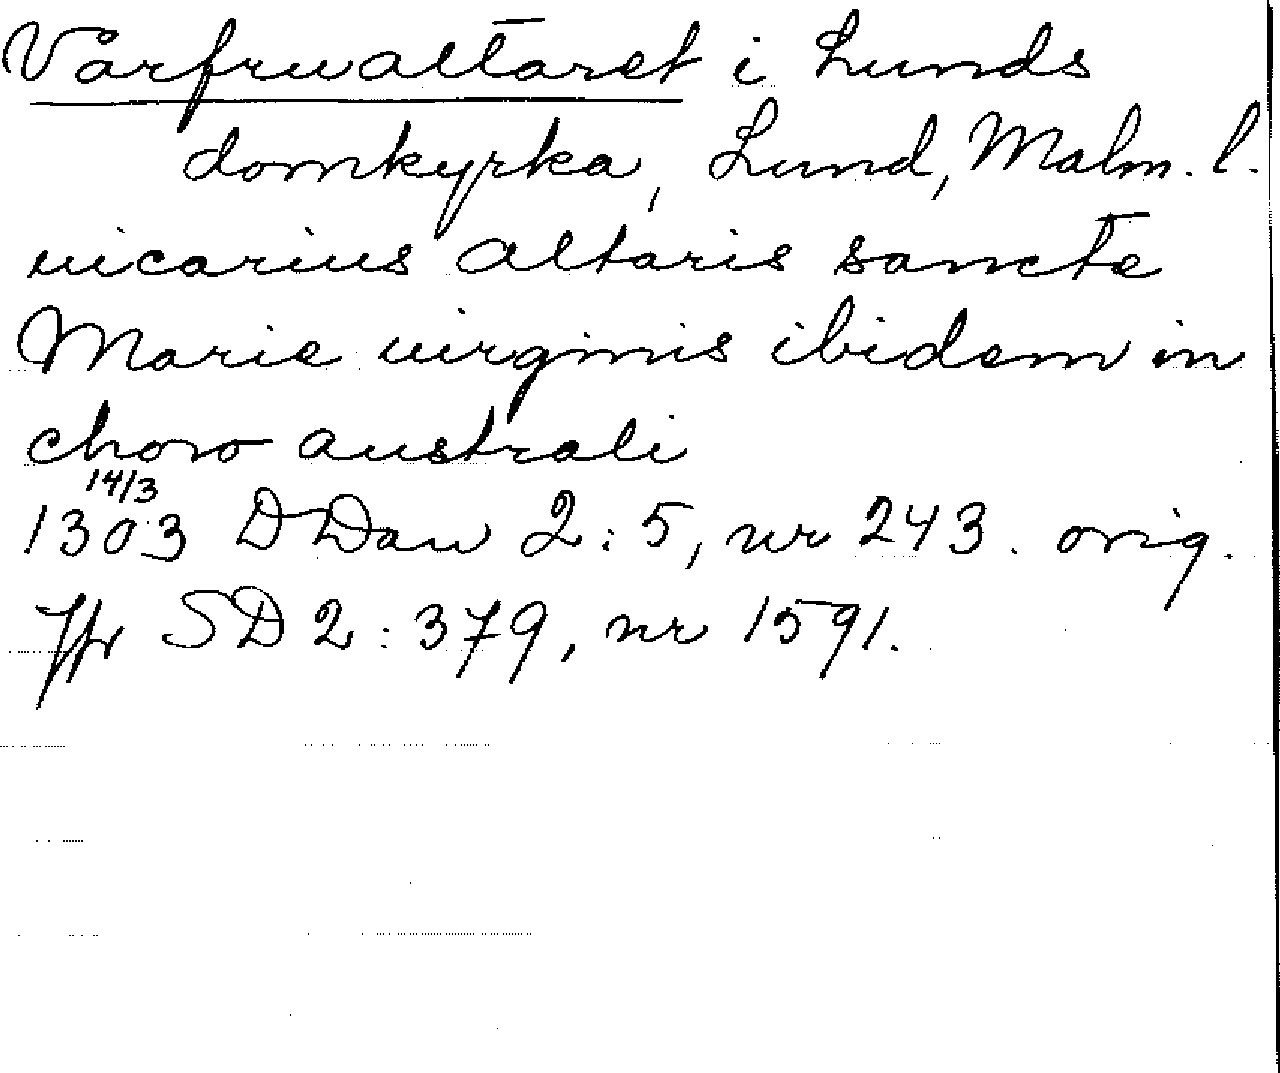 Vårfrualtaret i Lunds
domkyrka, Lund, Malm. l.
uicarius altaris sancte
Marie uirginis ibidem in
choro australi
14/3
1303 DDan 2:5, nr 243. orig.
Jfr SD 2:379, nr 1591.